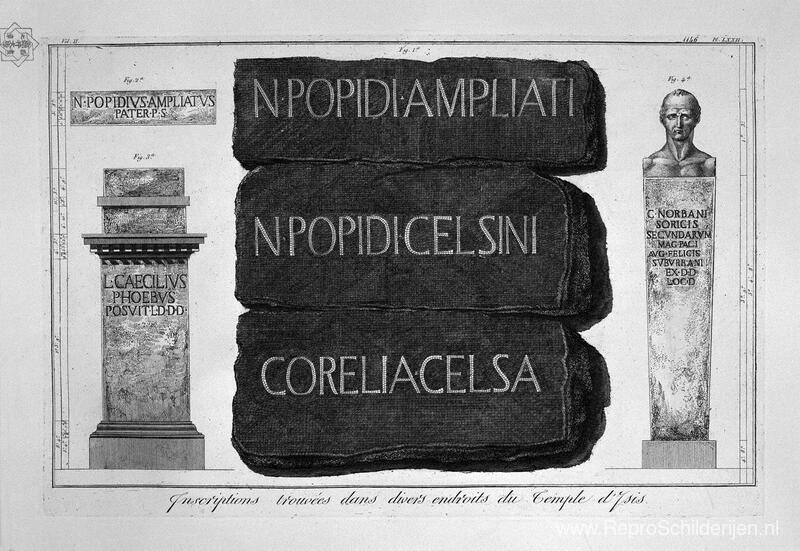 Vol. II.
1146 Pl. LXXII.
Fig. 1.ª
N·POPIDI·AMPLIATI
N·POPIDI·CELSINI
CORELIACELSA
Fig. 2.ª
N·POPIDIVS·AMPLIATVS
PATER·P·S
Fig. 3.ª
L·CAECILIVS
PHOEBVS
POSVIT·L·D·D·D·
Fig. 4.ª
C NORBANI
SORICIS
SECVNDARVM
MAG PAGI
AVG FELICIS
SVBVRBANI
EX·D·D
LOC·D
Inscriptions trouvées dans divers endroits du Temple d'Isis.
www.ReproSchilderijen.nl